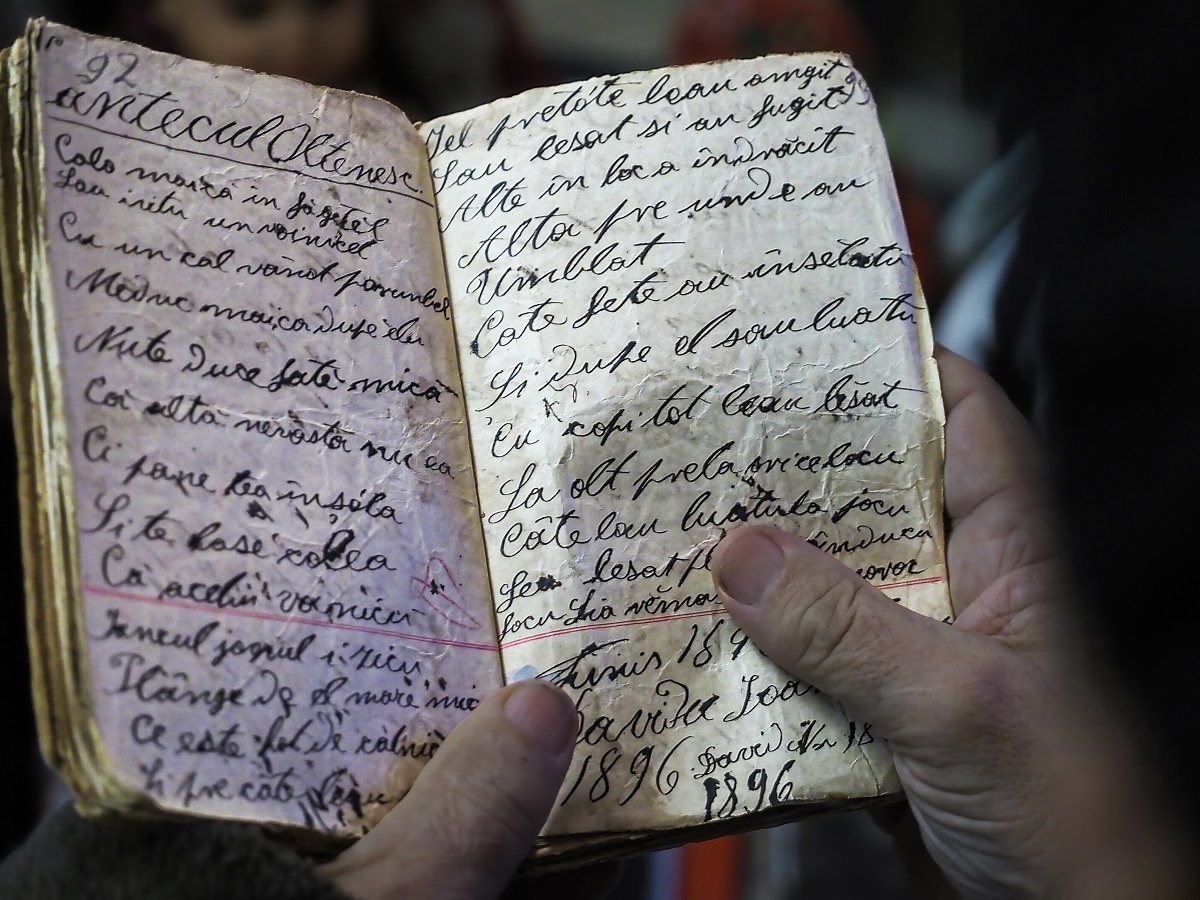 92
antecul Oltenesc.
Colo maica in făgețel
Sau ivitu un voinicel
Cu un cal vânăt porumbel
Meduc maica dupe elu
Nute duce fată mică
Că alta nevasta nu ea
Ci pane tea însela
Si te lasă colea
Că acelui voinicu
Iancul jonul i zicu
Plânge de el mare mic
Ce este fel de
Si pre căte
93
Iel pretóte leau amgit
Leau lesat si au fugit
Alte în loc a îndrăcit
Alta pre unde au
Umblat
Cate fete au înselatu
Si dupe el sau luatu
Cu copi tot leau lésat
La olt prela
Căte leau luatula jocu
Leau lesat înduca
focu Sia
Finis 189
Davidu Ioa
1896 David 18
1896